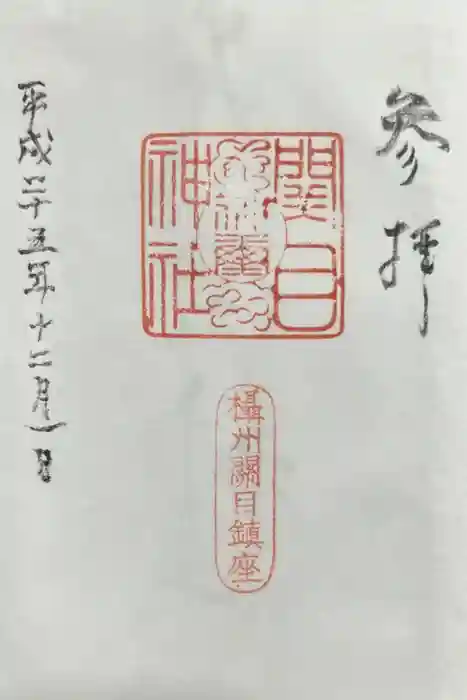 参拝
関目
神社
攝州關目鎮座
平成二十五年十二月一日